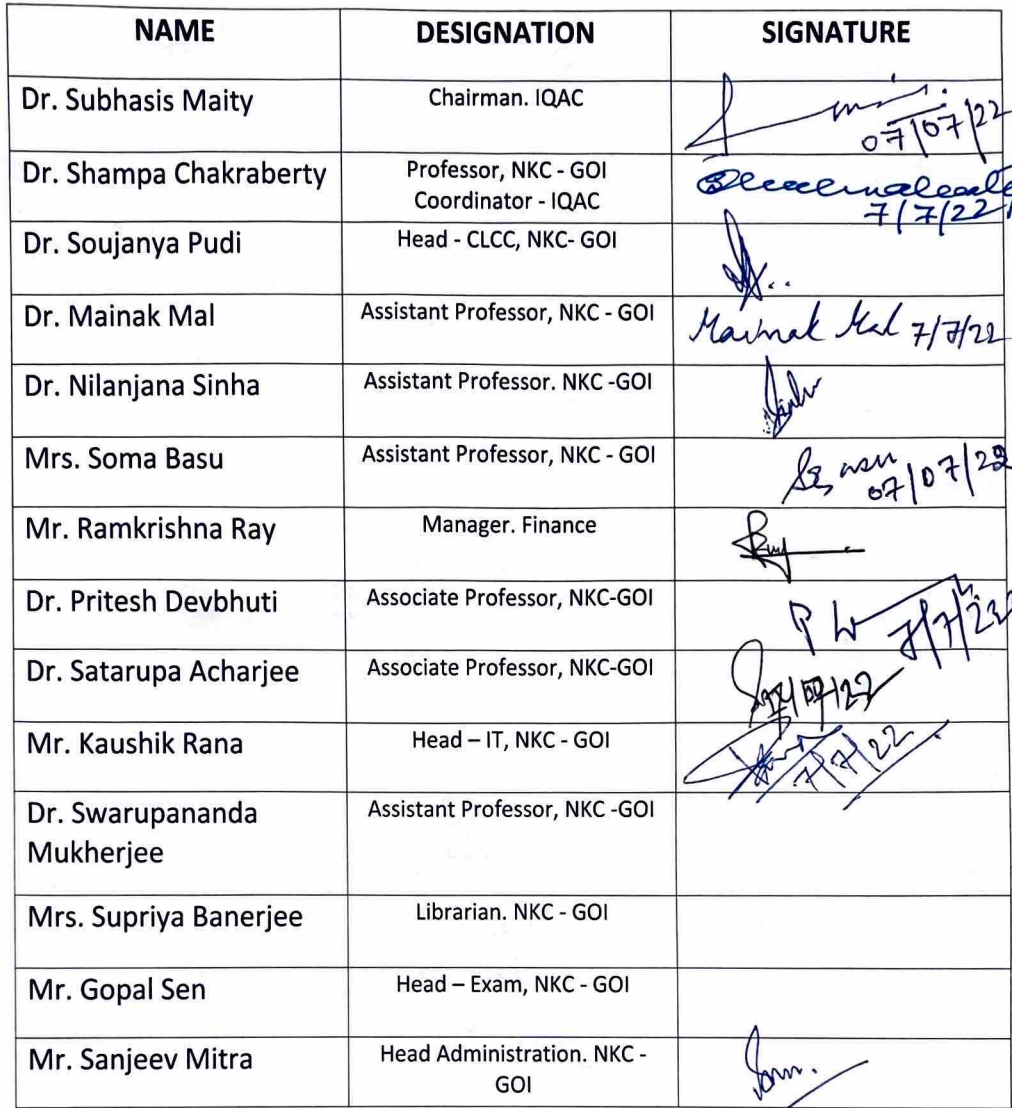 NAME DESIGNATION SIGNATURE
Dr. Subhasis Maity Chairman. IQAC
07/07/22
Dr. Shampa Chakraberty Professor, NKC - GOI
Coordinator - IQAC
7/7/22
Dr. Soujanya Pudi Head - CLCC, NKC- GOI
Dr. Mainak Mal Assistant Professor, NKC - GOI Mainak Mal 7/7/22
Dr. Nilanjana Sinha Assistant Professor. NKC -GOI
Mrs. Soma Basu Assistant Professor, NKC - GOI
07/07/22
Mr. Ramkrishna Ray Manager. Finance
Dr. Pritesh Devbhuti Associate Professor, NKC-GOI
7/7/22
Dr. Satarupa Acharjee Associate Professor, NKC-GOI
Mr. Kaushik Rana Head – IT, NKC - GOI
7/7/22
Dr. Swarupananda Assistant Professor, NKC -GOI
Mukherjee
Mrs. Supriya Banerjee Librarian. NKC - GOI
Mr. Gopal Sen Head – Exam, NKC - GOI
Mr. Sanjeev Mitra Head Administration. NKC -
GOI